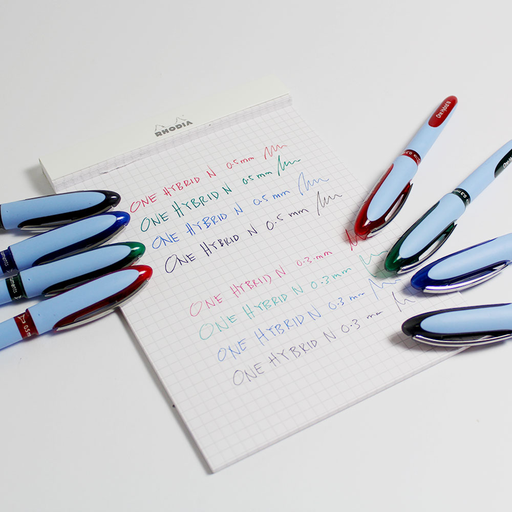 RHODIA
ONE HYBRID N 0.5 mm
ONE HYBRID N 0.5 mm
ONE HYBRID N 0.5 mm
ONE HYBRID N 0.5 mm
ONE HYBRID N 0.3 mm
ONE HYBRID N 0.3 mm
ONE HYBRID N 0.3 mm
ONE HYBRID N 0.3 mm
One Hybrid N